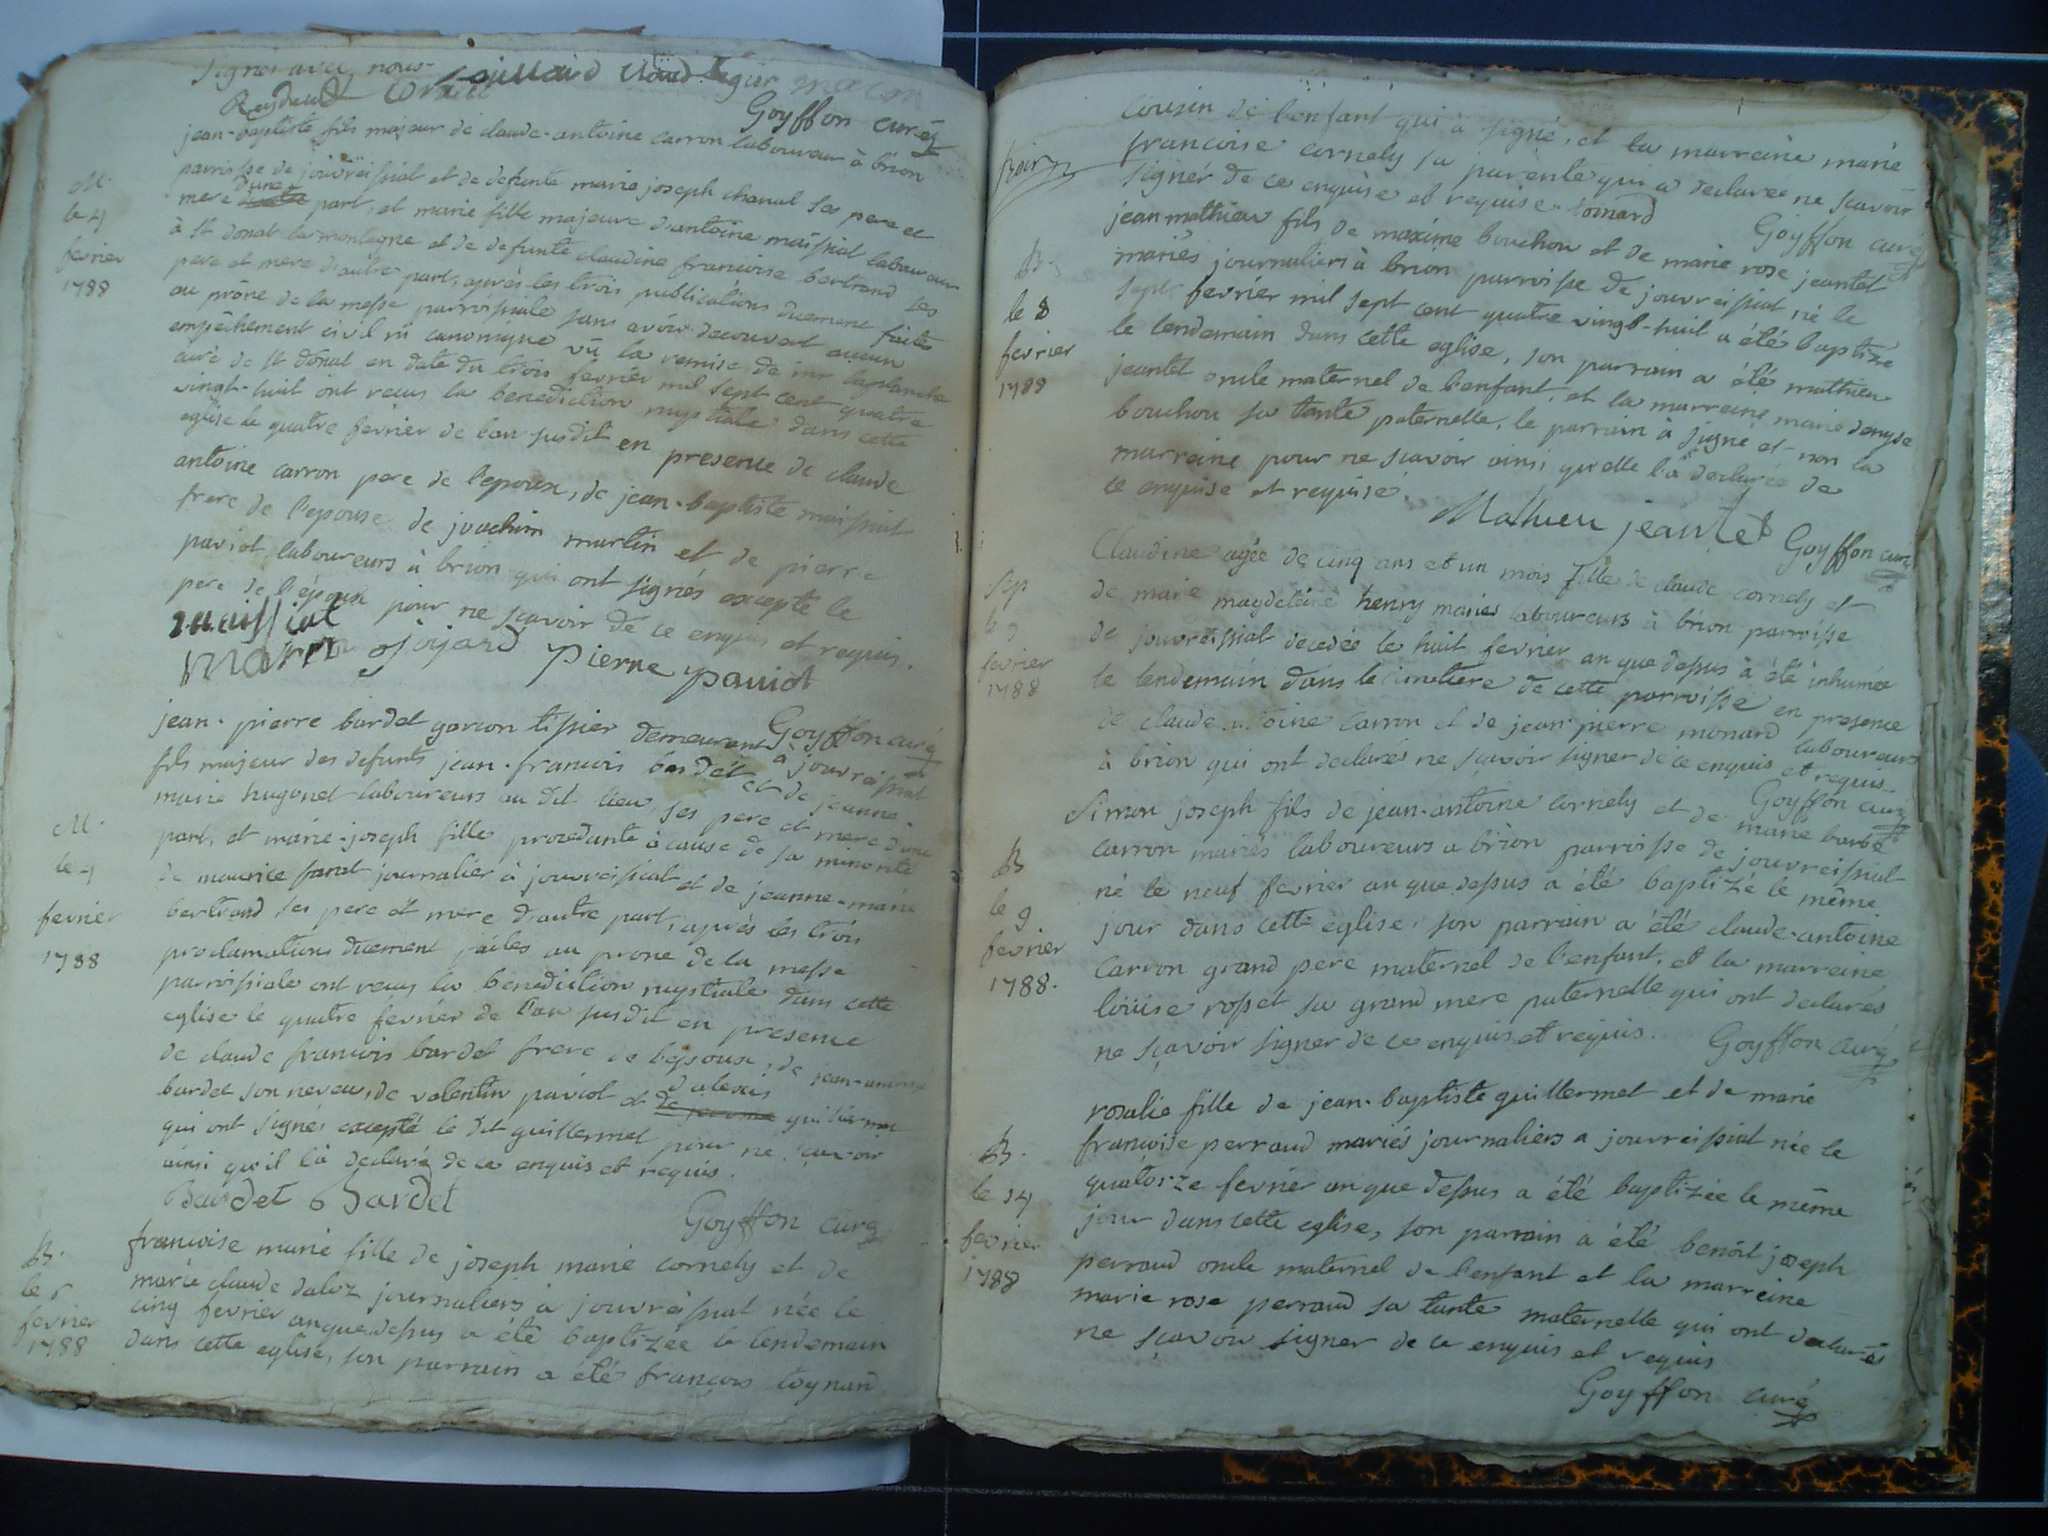 signer avec nous.
Goyffon curé
jean-baptiste fils majeur de claude-antoine carron laboureur à brion
parroisse de jouvreissiat et de defunte marie joseph chanal ses pere et
mere d'une part, et marie fille majeure d'antoine maissiat laboureur
à st donat la montagne et de defunte claudine francoise bertrand ses
pere et mere d'autre part, après les trois publications duement faites
au prône de la messe parroissiale sans avoir decouvert aucun
empêchement civil ni canonique vû la remise de mr laplanche
curé de st donat en date du trois fevrier mil sept cent quatre
vingt-huit ont recus la benediction nuptiale dans cette
eglise le quatre février de l'an susdit en presence de claude
antoine carron pere de l'epoux, de jean-baptiste maissiat
frere de l'epouse de joachim martin et de pierre
paviot laboureurs à brion qui ont signés excepté le
pere de l'époux pour ne scavoir de ce enquis et requis.
M.
le 4
fevrier
1788
maissiat
pierre paviot
Goyffon curé
jean-pierre bardet garcon tissier demeurant à jouvreissiat
fils majeur des defunts jean-francois bardet et de jeanne-
marie hugonet laboureurs au dit lieu, ses pere et mere d'une
part, et marie-joseph fille procedante à cause de sa minorité
de maurice janet journalier à jouvreissiat et de jeanne-marie
bertrand ses pere et mere d'autre part, après les trois
proclamations duement faites au prone de la messe
parroissiale ont recus la benediction nuptiale dans cette
eglise le quatre février de l'an susdit en presence
de claude francois bardet frere de l'epoux, de jean-
bardet son neveu, de valentin paviot et d'alexis guillermet
qui ont signés excepté le dit guillermet pour ne scavoir
ainsi qu'il l'a declaré de ce enquis et requis.
M.
le 4
fevrier
1788
Bardet Bardet
Goyffon curé
B.
le 6
fevrier
1788
francoise marie fille de joseph marie cornely et de
marie claude daloz journaliers à jouvreissiat née le
cinq fevrier an que dessus a été baptizée le lendemain
dans cette eglise, son parrain a été françois toynard
cousin de l'enfant qui à signé, et la marreine marie
francoise cornely sa parente qui a declarée ne scavoir
signer de ce enquise et requise. toinard
Goyffon curé
B.
le 8
fevrier
1788
jean mathieu fils de maxime bouchou et de marie rose jeantet
mariés journaliers à brion parroisse de jouvreissiat né le
sept fevrier mil sept cent quatre vingt-huit a été baptizé
le lendemain dans cette eglise, son parrain a été mathieu
jeantet oncle maternel de l'enfant, et la marreine marie denyse
bouchou sa tante paternelle, le parrain à signé et non la
marreine pour ne scavoir ainsi qu'elle l'a declarée de
ce enquise et requise.
Mathieu jeantet Goyffon curé
Sep
le 9
fevrier
1788
Claudine agée de cinq ans et un mois fille de claude cornely et
de marie magdeleine henry mariés laboureurs à brion parroisse
de jouvreissiat decedée le huit fevrier an que dessus à été inhumée
le lendemain dans le cimetiere de cette parroisse en presence
de claude antoine carron et de jean-pierre monard laboureurs
à brion qui ont declarés ne scavoir signer de ce enquis et requis.
Goyffon curé
B
le 9
fevrier
1788.
Simon joseph fils de jean-antoine cornely et de marie barbe
carron mariés laboureurs a brion parroisse de jouvreissiat
né le neuf fevrier an que dessus a été baptizé le même
jour dans cette eglise, son parrain a été claude-antoine
carron grand pere maternel de l'enfant, et la marreine
loüise rosset sa grand mere paternelle qui ont declarés
ne sçavoir signer de ce enquis et requis. Goyffon curé
B.
le 14
fevrier
1788
rosalie fille de jean-baptiste guillermet et de marie
françoise perraud mariés journaliers a jouvreissiat née le
quatorze fevrier an que dessus a été baptizée le même
jour dans cette eglise, son parrain a été benoit joseph
perraud oncle maternel de l'enfant et la marreine
marie rose perraud sa tante maternelle qui ont declarés
ne sçavoir signer de ce enquis et requis
Goyffon curé